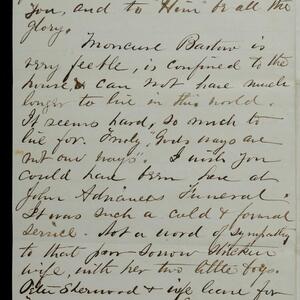 You, and to Him be all the
glory.
Moncure Barlow is
very feeble, is confined to the
house, & can not have much
longer to live in this world.
It seems hard, so much to
live for. Truly, "God's ways are
not our ways". I wish you
could have been here at
John Adriance's Funeral.
It was such a cold & formal
service. Not a word of sympathy
to that poor sorrow stricken
wife, with her two little boys.
Peter Sherwood & wife leave for